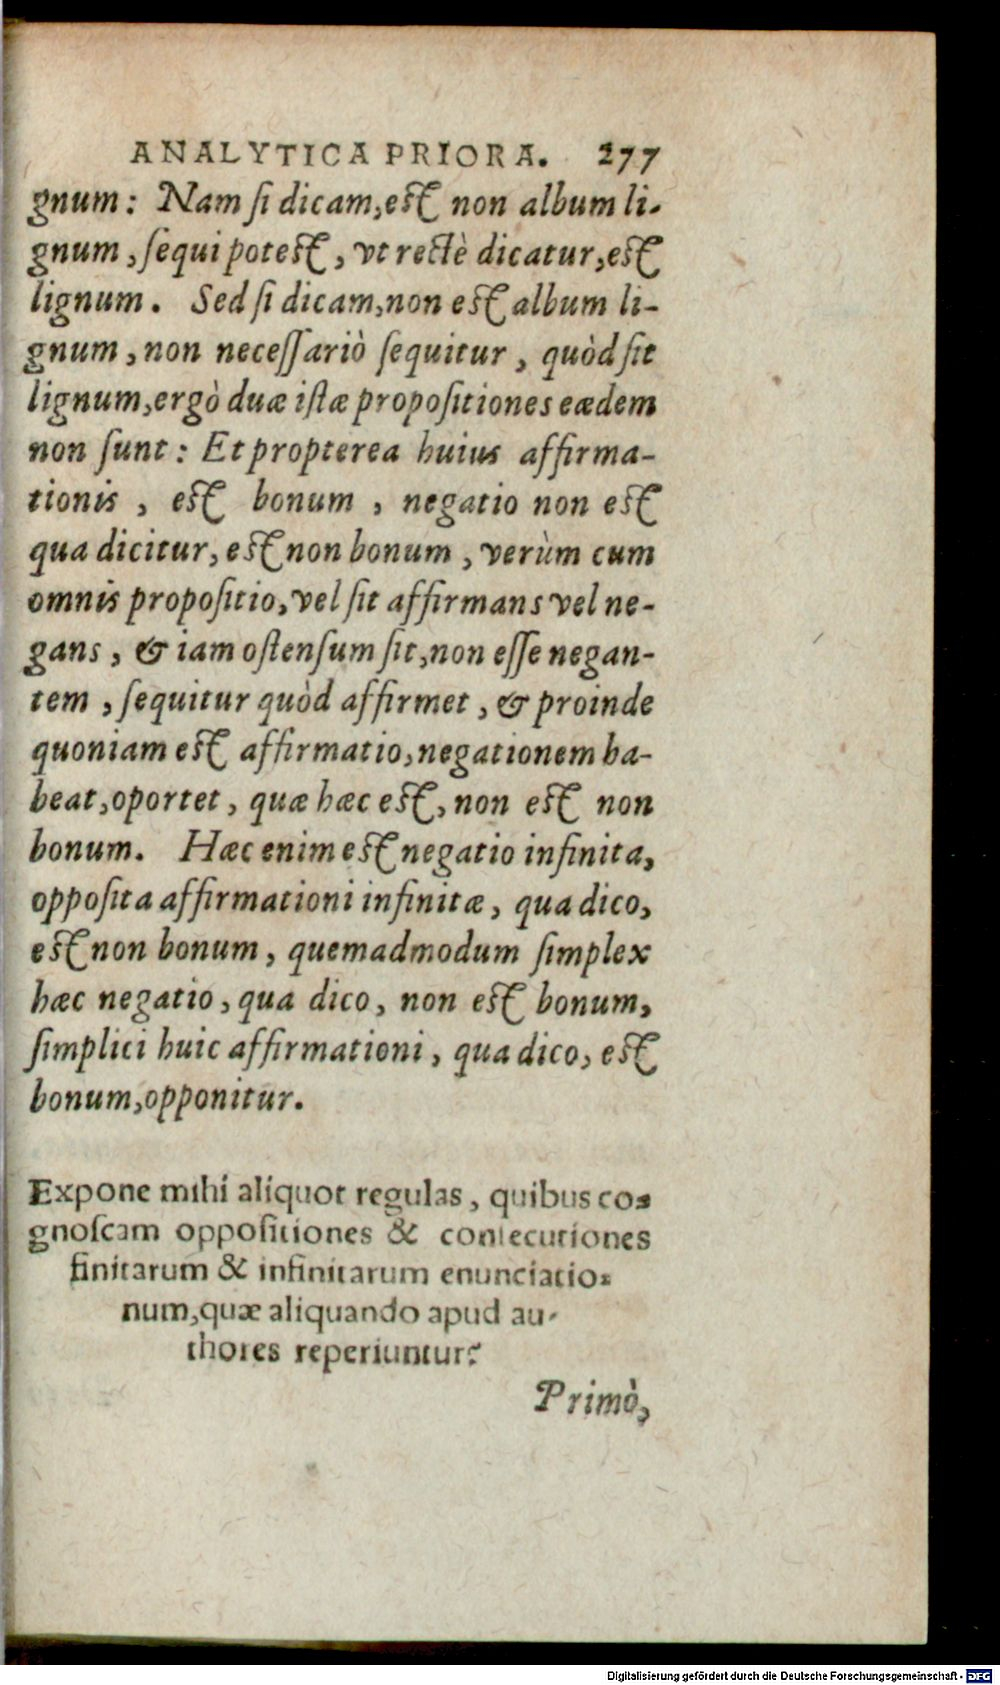 ANALYTICA PRIORA. 277
gnum: Nam ſi dicam, eſt non album li-
gnum, ſequi poteſt, vt rectè dicatur, eſt
lignum. Sed ſi dicam, non eſt album li-
gnum, non neceſſariò ſequitur, quòd ſit
lignum, ergò duæ iſtæ propoſitiones eædem
non ſunt: Et propterea huius affirma-
tionis, eſt bonum, negatio non eſt
qua dicitur, eſt non bonum, verùm cum
omnis propoſitio, vel ſit affirmans vel ne-
gans, & iam oſtenſum ſit, non eſſe negan-
tem, ſequitur quòd affirmet, & proinde
quoniam eſt affirmatio, negationem ha-
beat, oportet, quæ hæc eſt, non eſt non
bonum. Hæc enim eſt negatio infinita,
oppoſita affirmationi infinitæ, qua dico,
eſt non bonum, quemadmodum ſimplex
hæc negatio, qua dico, non eſt bonum,
ſimplici huic affirmationi, qua dico, eſt
bonum, opponitur.
Expone mihi aliquot regulas, quibus co-
gnoſcam oppoſitiones & conſecutiones
finitarum & infinitarum enunciatio-
num, quæ aliquando apud au-
thores reperiuntur?
Primò,
Digitalisierung gefördert durch die Deutsche Forschungsgemeinschaft - DFG